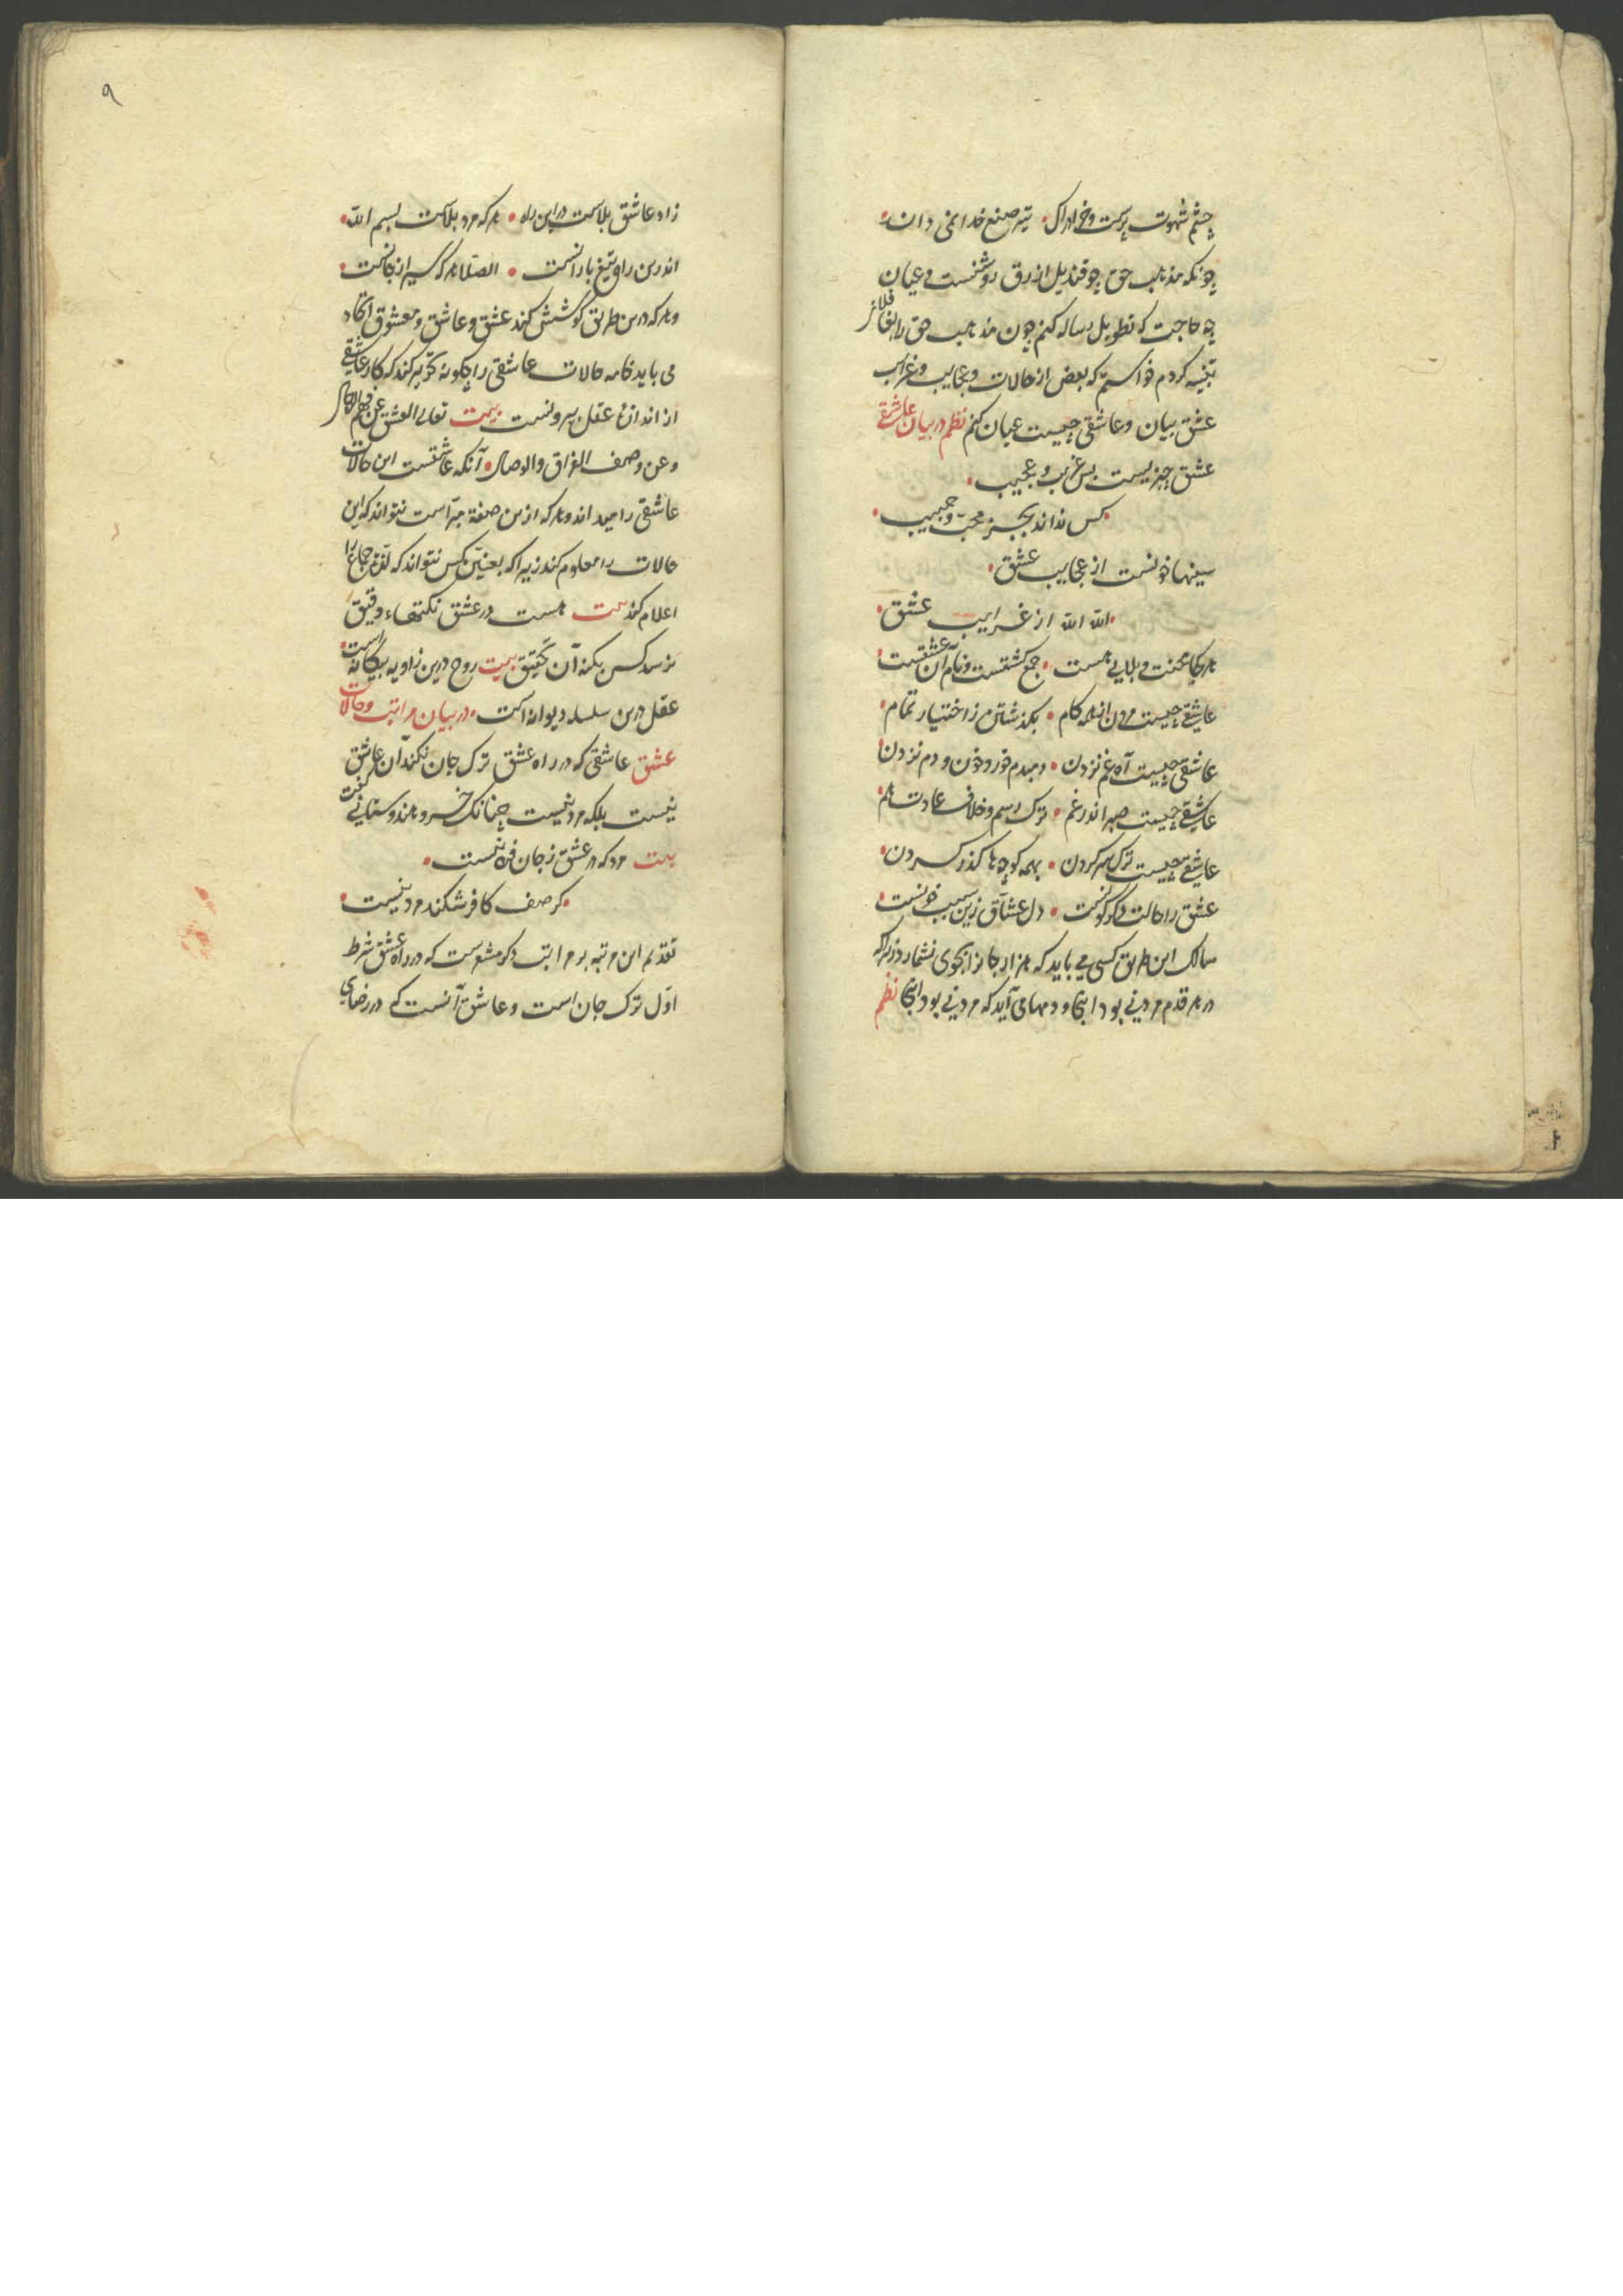 چشم شهوت پرست وخر ادراک سر صنع خدا نمی داند
چونکه مذهب حق چو قندیل ازرق روشنست وعیان
چه حاجت که تطویل رساله کنم چون مذهب حق را بغافلان
تنبیه کردم خواستم که بعض از حالات وعجایب وغرایب
عشق بیان وعاشقی چیست عیان کنم نظم در بیان عاشقی
عشق چیزیست بس غریب وعجیب
کس نداند بجز محب وحبیب
سینها خونست از عجایب عشق
الله الله از غرایب عشق
هر کجا محنت وبلایی هست جمع گشتست ونام آن عشقست
عاشقی چیست مردن از همه کام بگذشتن ز اختیار تمام
عاشقی چیست آه غم نزدن دمبدم خوردن خون ودم نزدن
عاشقی چیست صبر اندر غم ترک رسم وخلاف عادت هم
عاشقی چیست ترک سر کردن بهمه کوچه ها گذر کردن
عشق را حالت دگرگونست دل عشاق زین سبب خونست
سالک این طریق کسی می باید که هزار جانرا بجوی نشمارد زیراکه
در هر قدم مردنی بود اینجا ودمها می آید که مردنی بود اینجا نظم
۹
زاد عاشق بلاست در این راه هر که مرد بلاست بسم الله
اندرین راه تیغ بارانست الصلا هر که سیر از جانست
وهر که درین طریق کوشش کند عشق وعاشق ومعشوق اتحاد
می باید خامه حالات عاشقی را چگونه تحریر کند که کار عاشقی
از اندازهٔ عقل بیرونست بیت تعالی العشق عن فهم الرجال
وعن وصف الفراق والوصال آنکه عاشقست این حالات
عاشقی را میداند وهر که ازین صفة مبراست نتواند که این
حالات را معلوم کند زیراکه بعنین کس نتواند که لذة جماع را
اعلام کند بیت هست در عشق نکتهاء دقیق
نرسد کس بکنه آن تحقیق بیت روح درین زاویه بیگانه است
عقل درین سلسله دیوانه است در بیان مراتب وحالات
عشق عاشقی که در راه عشق ترک جان نکند آن عاشق
نیست بلکه مرد نیست چنانک خسرو هندوستانی گفت
بیت مرد که در عشق ز جان فرد نیست
گر صف کافر شکند مرد نیست
تقدیم این مرتبه بر مراتب دگر مشعرست که در راه عشق شرط
اول ترک جان است وعاشق آنست که در رضای